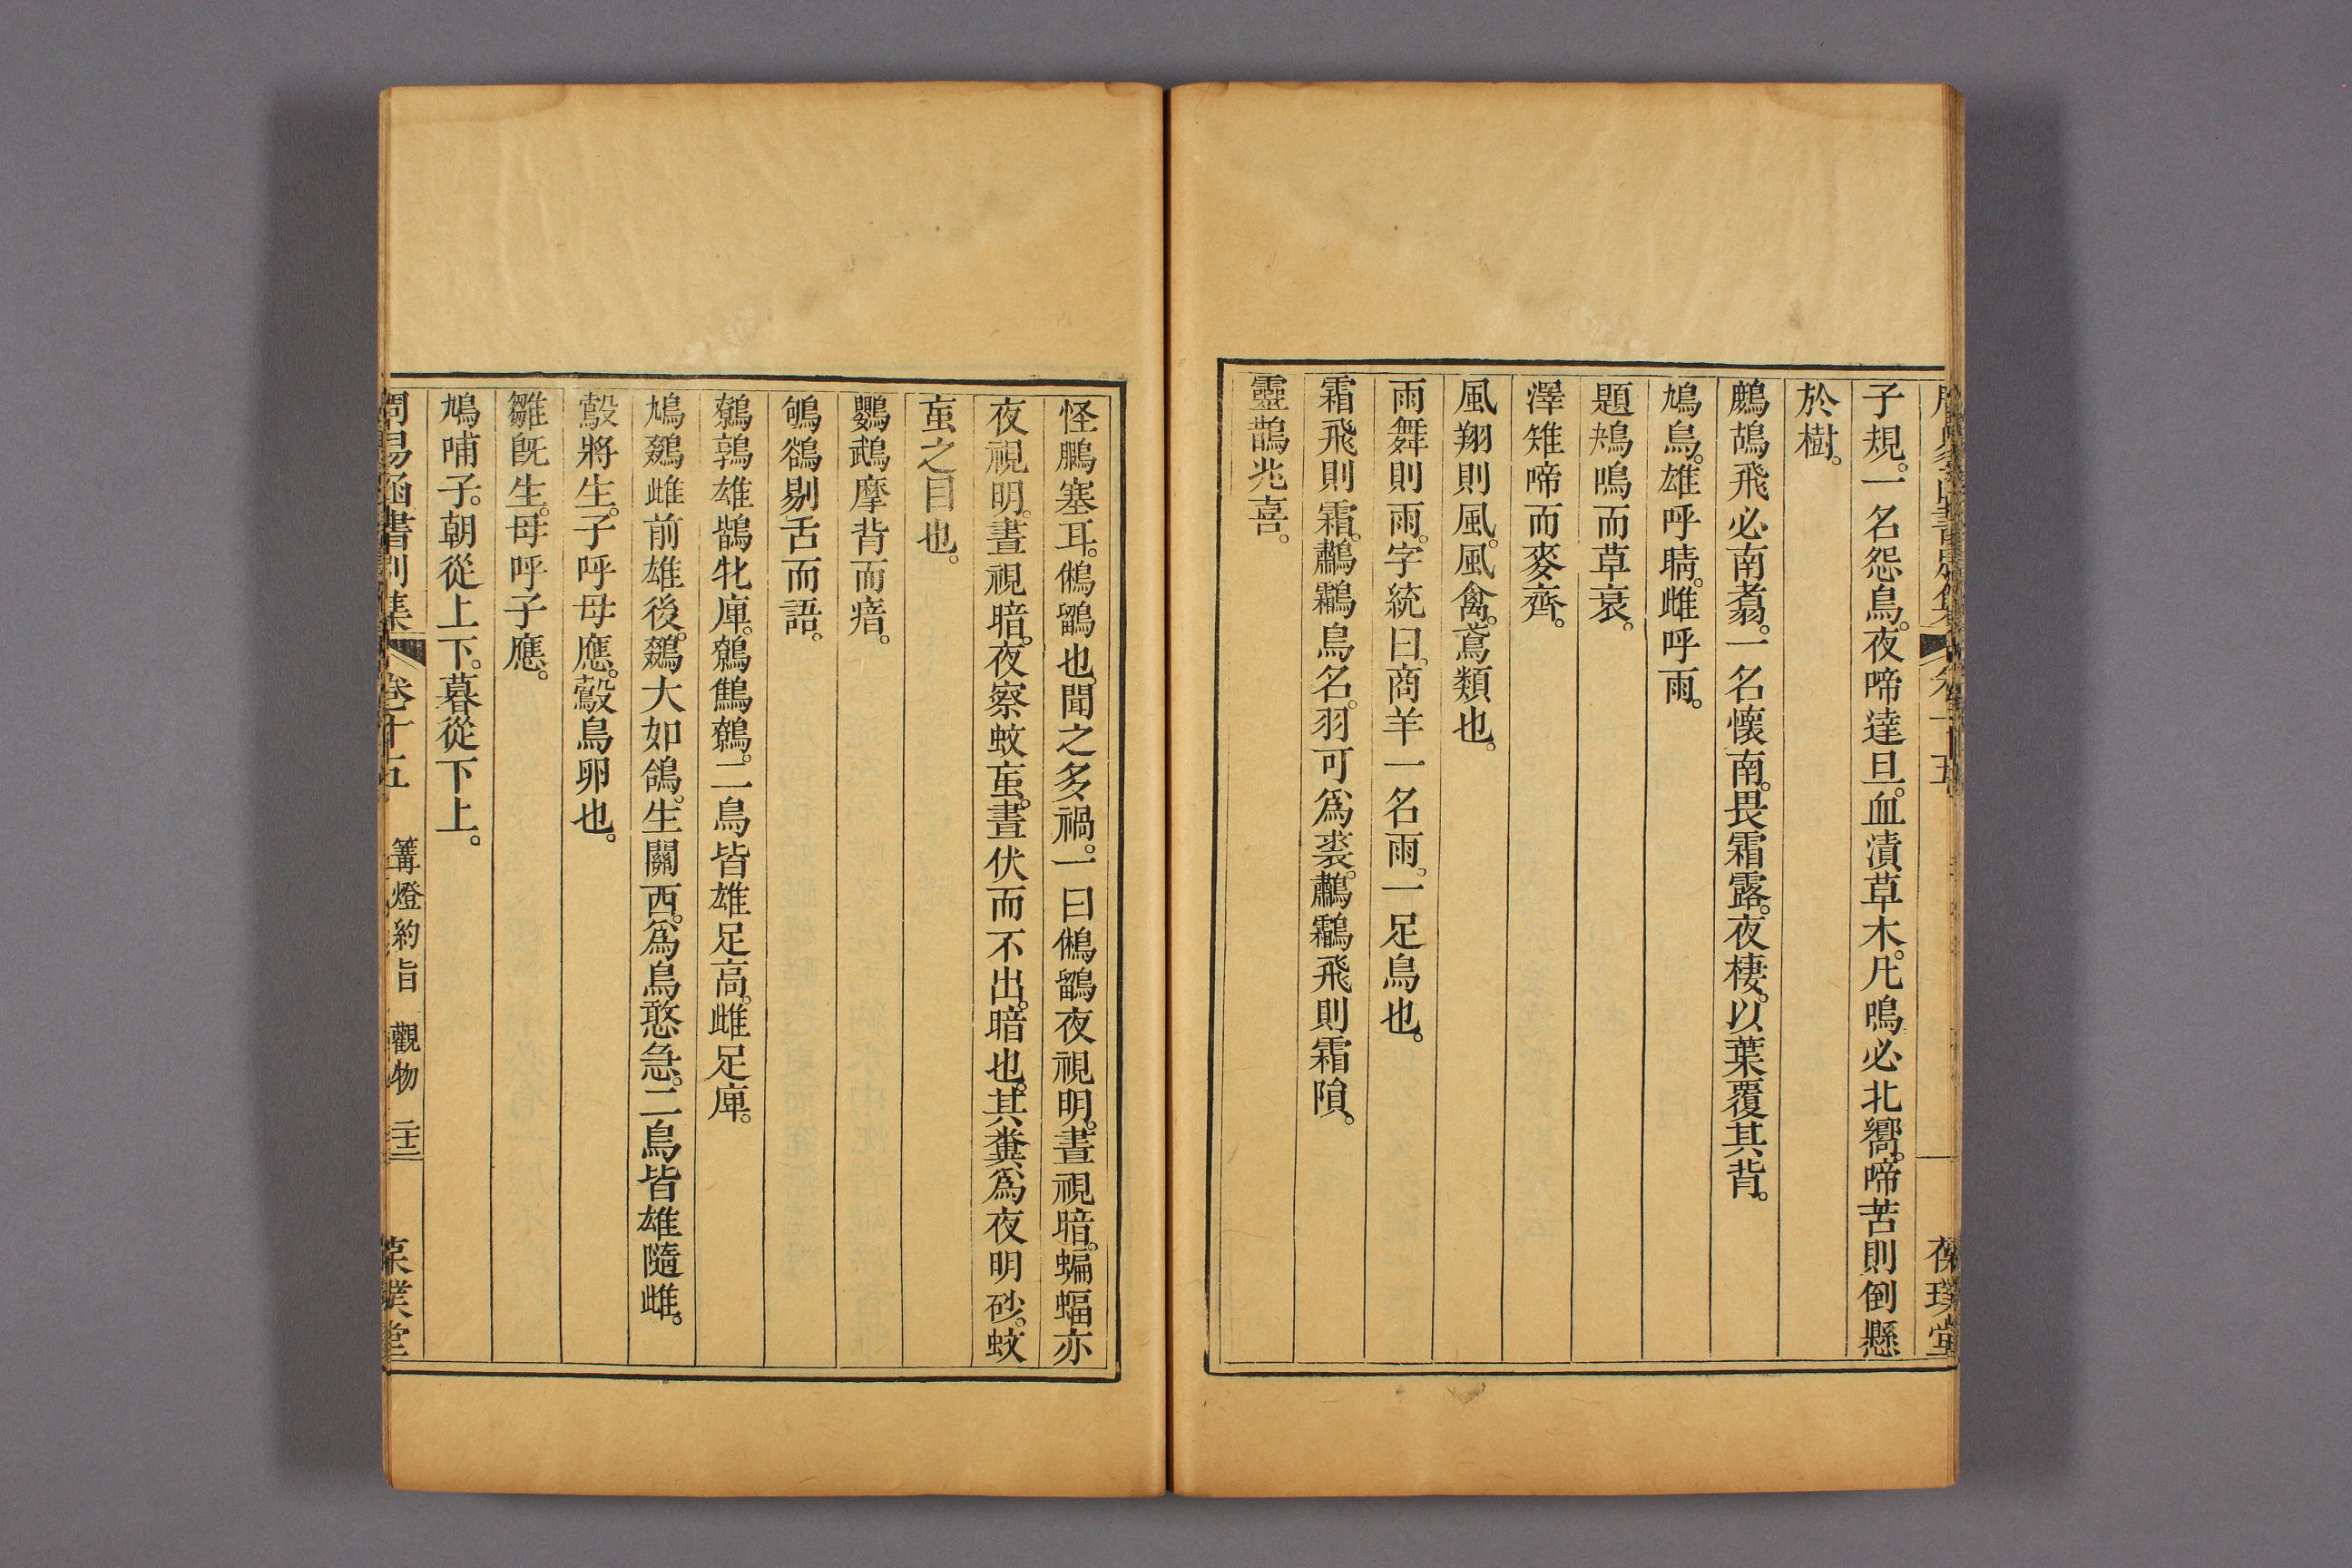 子規。一名怨鳥。夜啼達旦。血漬草木。凡鳴必北嚮。啼苦則倒懸
於樹。
鷓鴣飛必南翥。一名懷南。畏霜露。夜棲。以葉覆其背。
鳩鳥。雄呼晴。雌呼雨。
題鴂鳴而草衰。
澤雉啼而麥齊。
風翔則風。風禽。鳶類也。
雨舞則雨。字統曰。商羊一名雨。一足鳥也。
霜飛則霜。鷫鸘鳥名。羽可為裘。鷫鸘飛則霜隕。
靈鵲兆喜。
葆璞堂
怪鵩塞耳。鵂鶹也。聞之多禍。一曰鵂鶹夜視明。晝視暗。蝙蝠亦
夜視明。晝視暗。夜察蚊䖟。晝伏而不出。暗也。其糞為夜明砂。蚊
䖟之目也。
鸚鵡摩背而瘖。
鴝鵒剔舌而語。
鷯鶉雄鵲牝庳。鷯鷦鷯。二鳥皆雄足高。雌足庳。
鳩鷄雌前雄後。鷄大如鴿。生關西。為鳥憨急。二鳥皆雄隨雌。
鷇將生。子呼母應。鷇鳥卵也。
雛既生。母呼子應。
鳩哺子。朝從上下。暮從下上。
周易函書別集 卷十五 篝燈約旨 觀物 二十三 葆璞堂